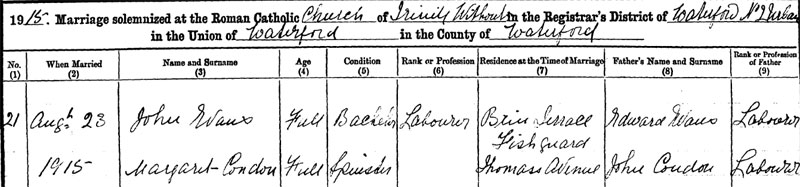 1915. Marriage solemnized at the Roman Catholic Church of Trinity Without in the Registrar's District of Waterford No 2 Urban
in the Union of Waterford in the County of Waterford
No. When Married Name and Surname Age Condition Rank or Profession Residence at the Time of Marriage Father's Name and Surname Rank or Profession of Father
(1) (2) (3) (4) (5) (6) (7) (8) (9)
21 Augt 23 John Evans Full Bachelor Labourer Terrace Edward Evans Labourer
Fishguard
1915 Margaret Condon Full Spinster Thomas Avenue John Condon Labourer